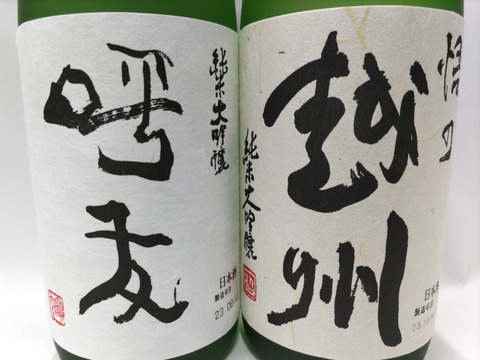 呼友
純米大吟醸
日本酒
製造年月
23.08
悟乃
越州
純米大吟醸
日本酒
製造年月
23.10